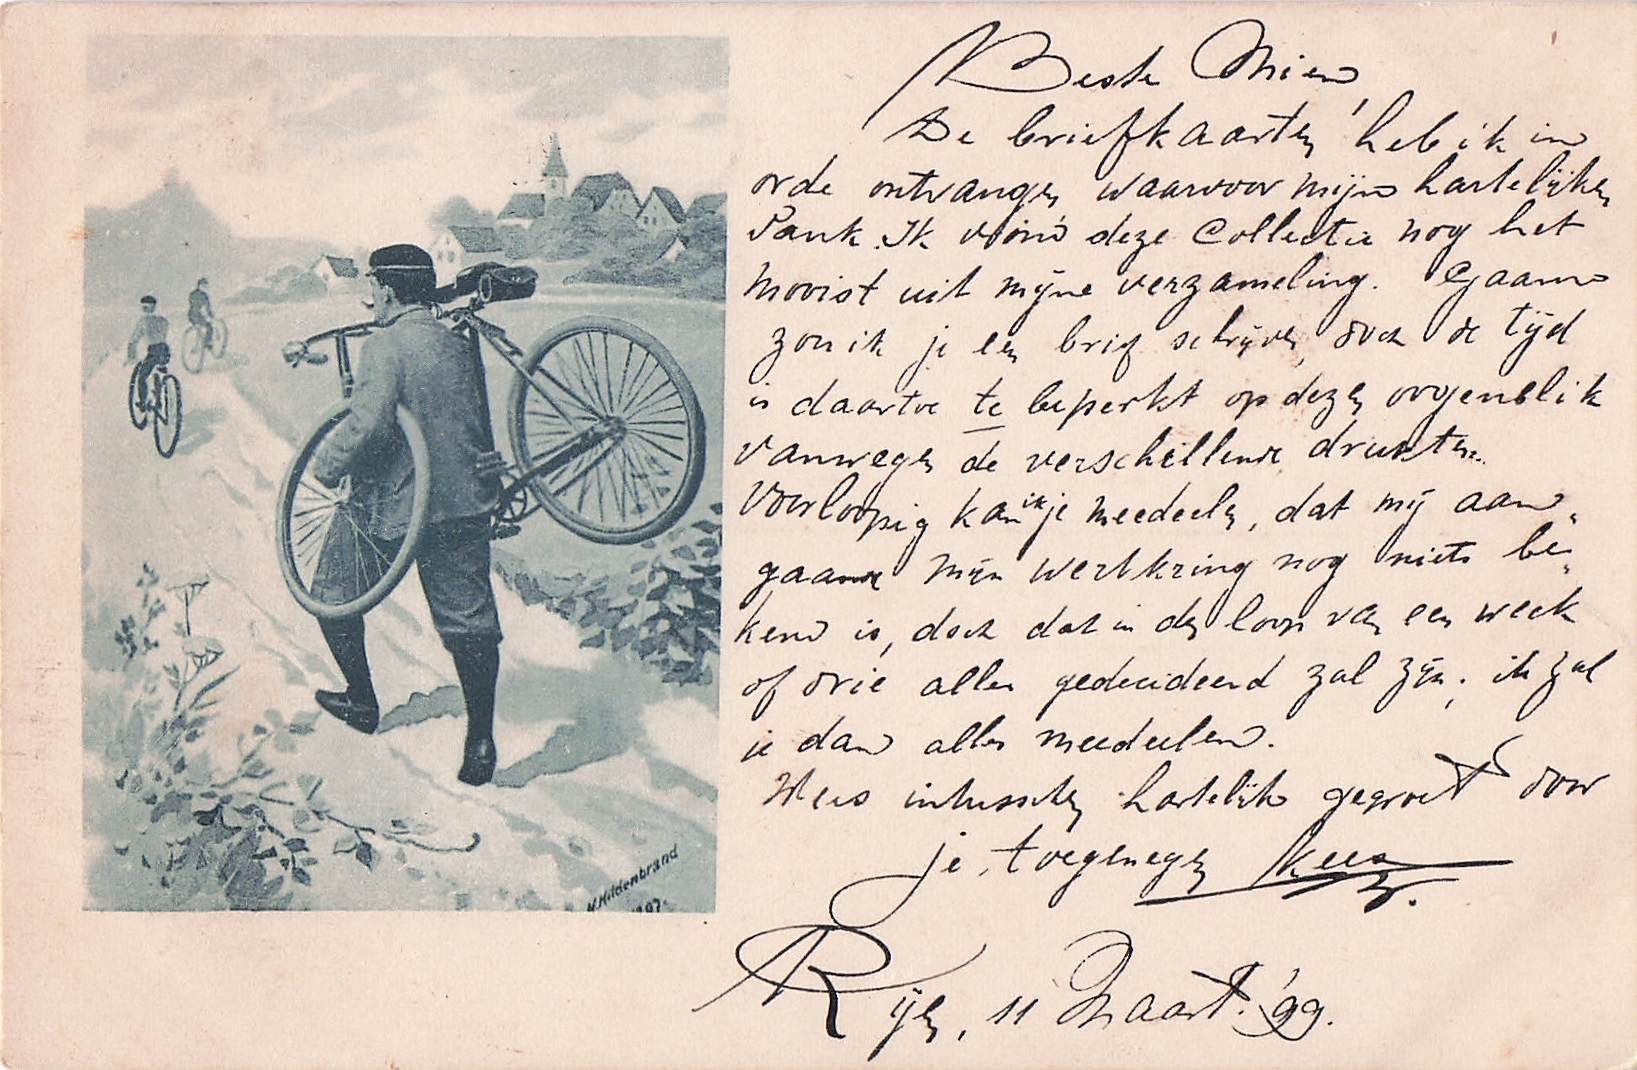 Beste Mien,
De briefkaarten heb ik in
orde ontvangen waarvoor mijne hartelijken
Dank. Ik vind deze Collectie nog het
mooist uit mijne verzameling. Gaarne
zou ik je een brief schrijven, doch de tijd
is daartoe te beperkt op dezen oogenblik
vanwegen de verschillende drukten.
Voorloopig kan ik je meedeelen, dat mij aan-
gaande mijn werkkring nog niets be-
kend is, doch dat in den loop van een week
of drie alles gedecideerd zal zijn; ik zal
je dan alles meedeelen.
Wees intusschen hartelijk gegroet door
je toegenegen Kees
Rijen, 11 Maart '99.
H. Hildenbrand
1897.